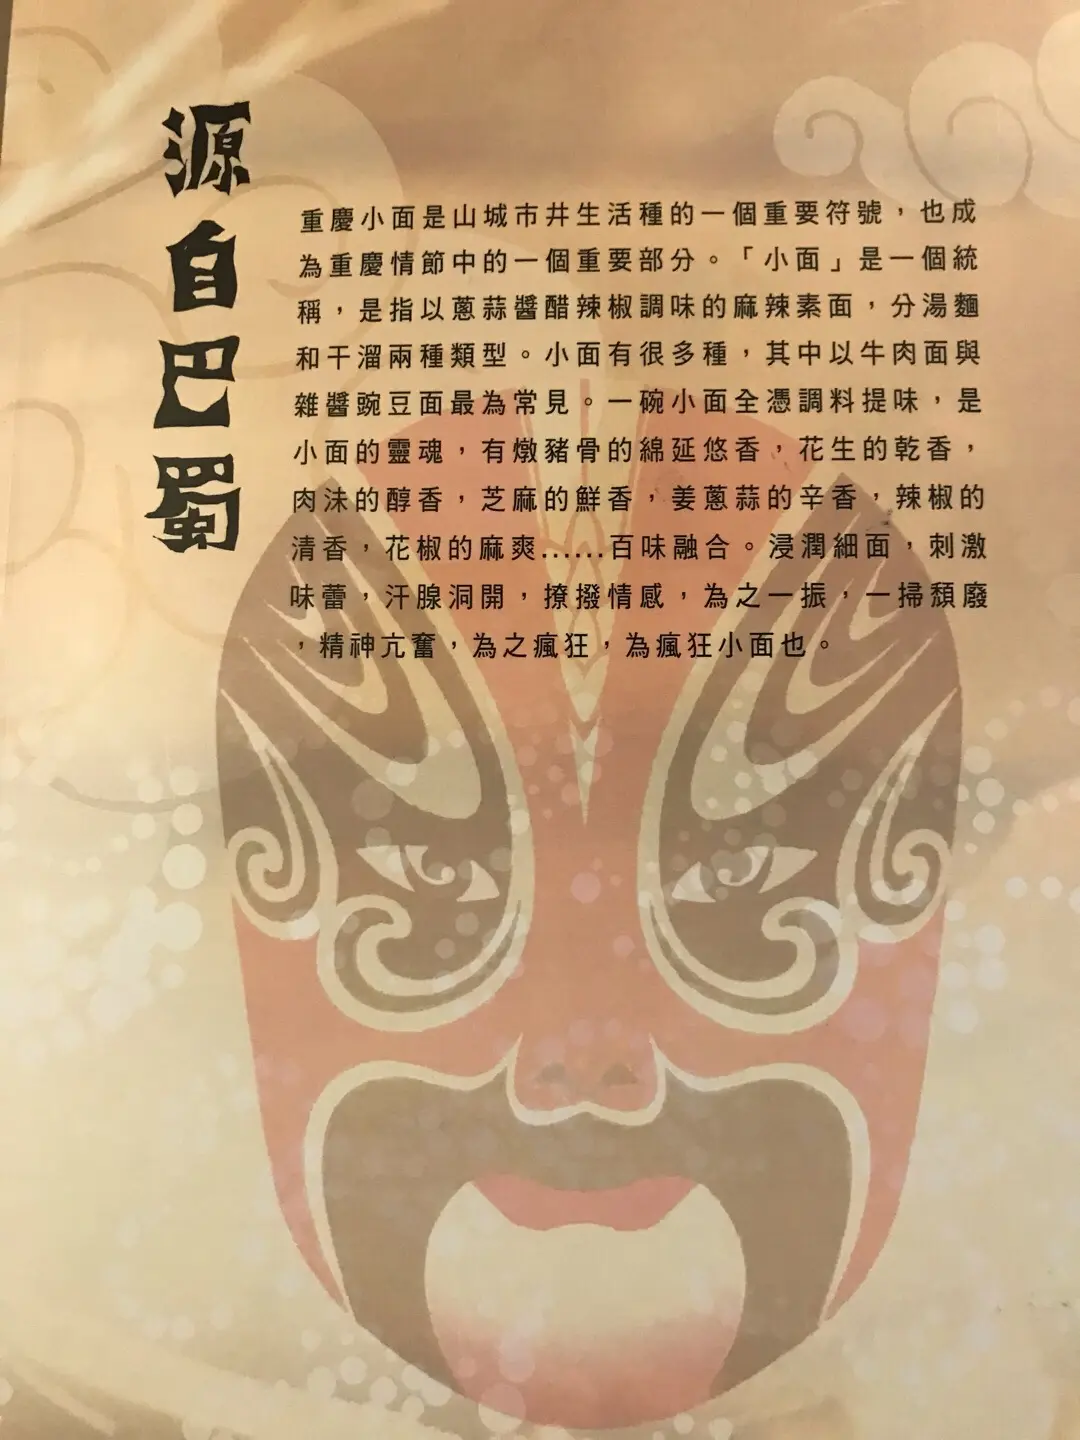 源自巴蜀
重慶小面是山城市井生活種的一個重要符號，也成
為重慶情節中的一個重要部分。「小面」是一個統
稱，是指以蔥蒜醬醋辣椒調味的麻辣素面，分湯麵
和干溜兩種類型。小面有很多種，其中以牛肉面與
雜醬豌豆面最為常見。一碗小面全憑調料提味，是
小面的靈魂，有燉豬骨的綿延悠香，花生的乾香，
肉沫的醇香，芝麻的鮮香，姜蔥蒜的辛香，辣椒的
清香，花椒的麻爽......百味融合。浸潤細面，刺激
味蕾，汗腺洞開，撩撥情感，為之一振，一掃頹廢
，精神亢奮，為之瘋狂，為瘋狂小面也。